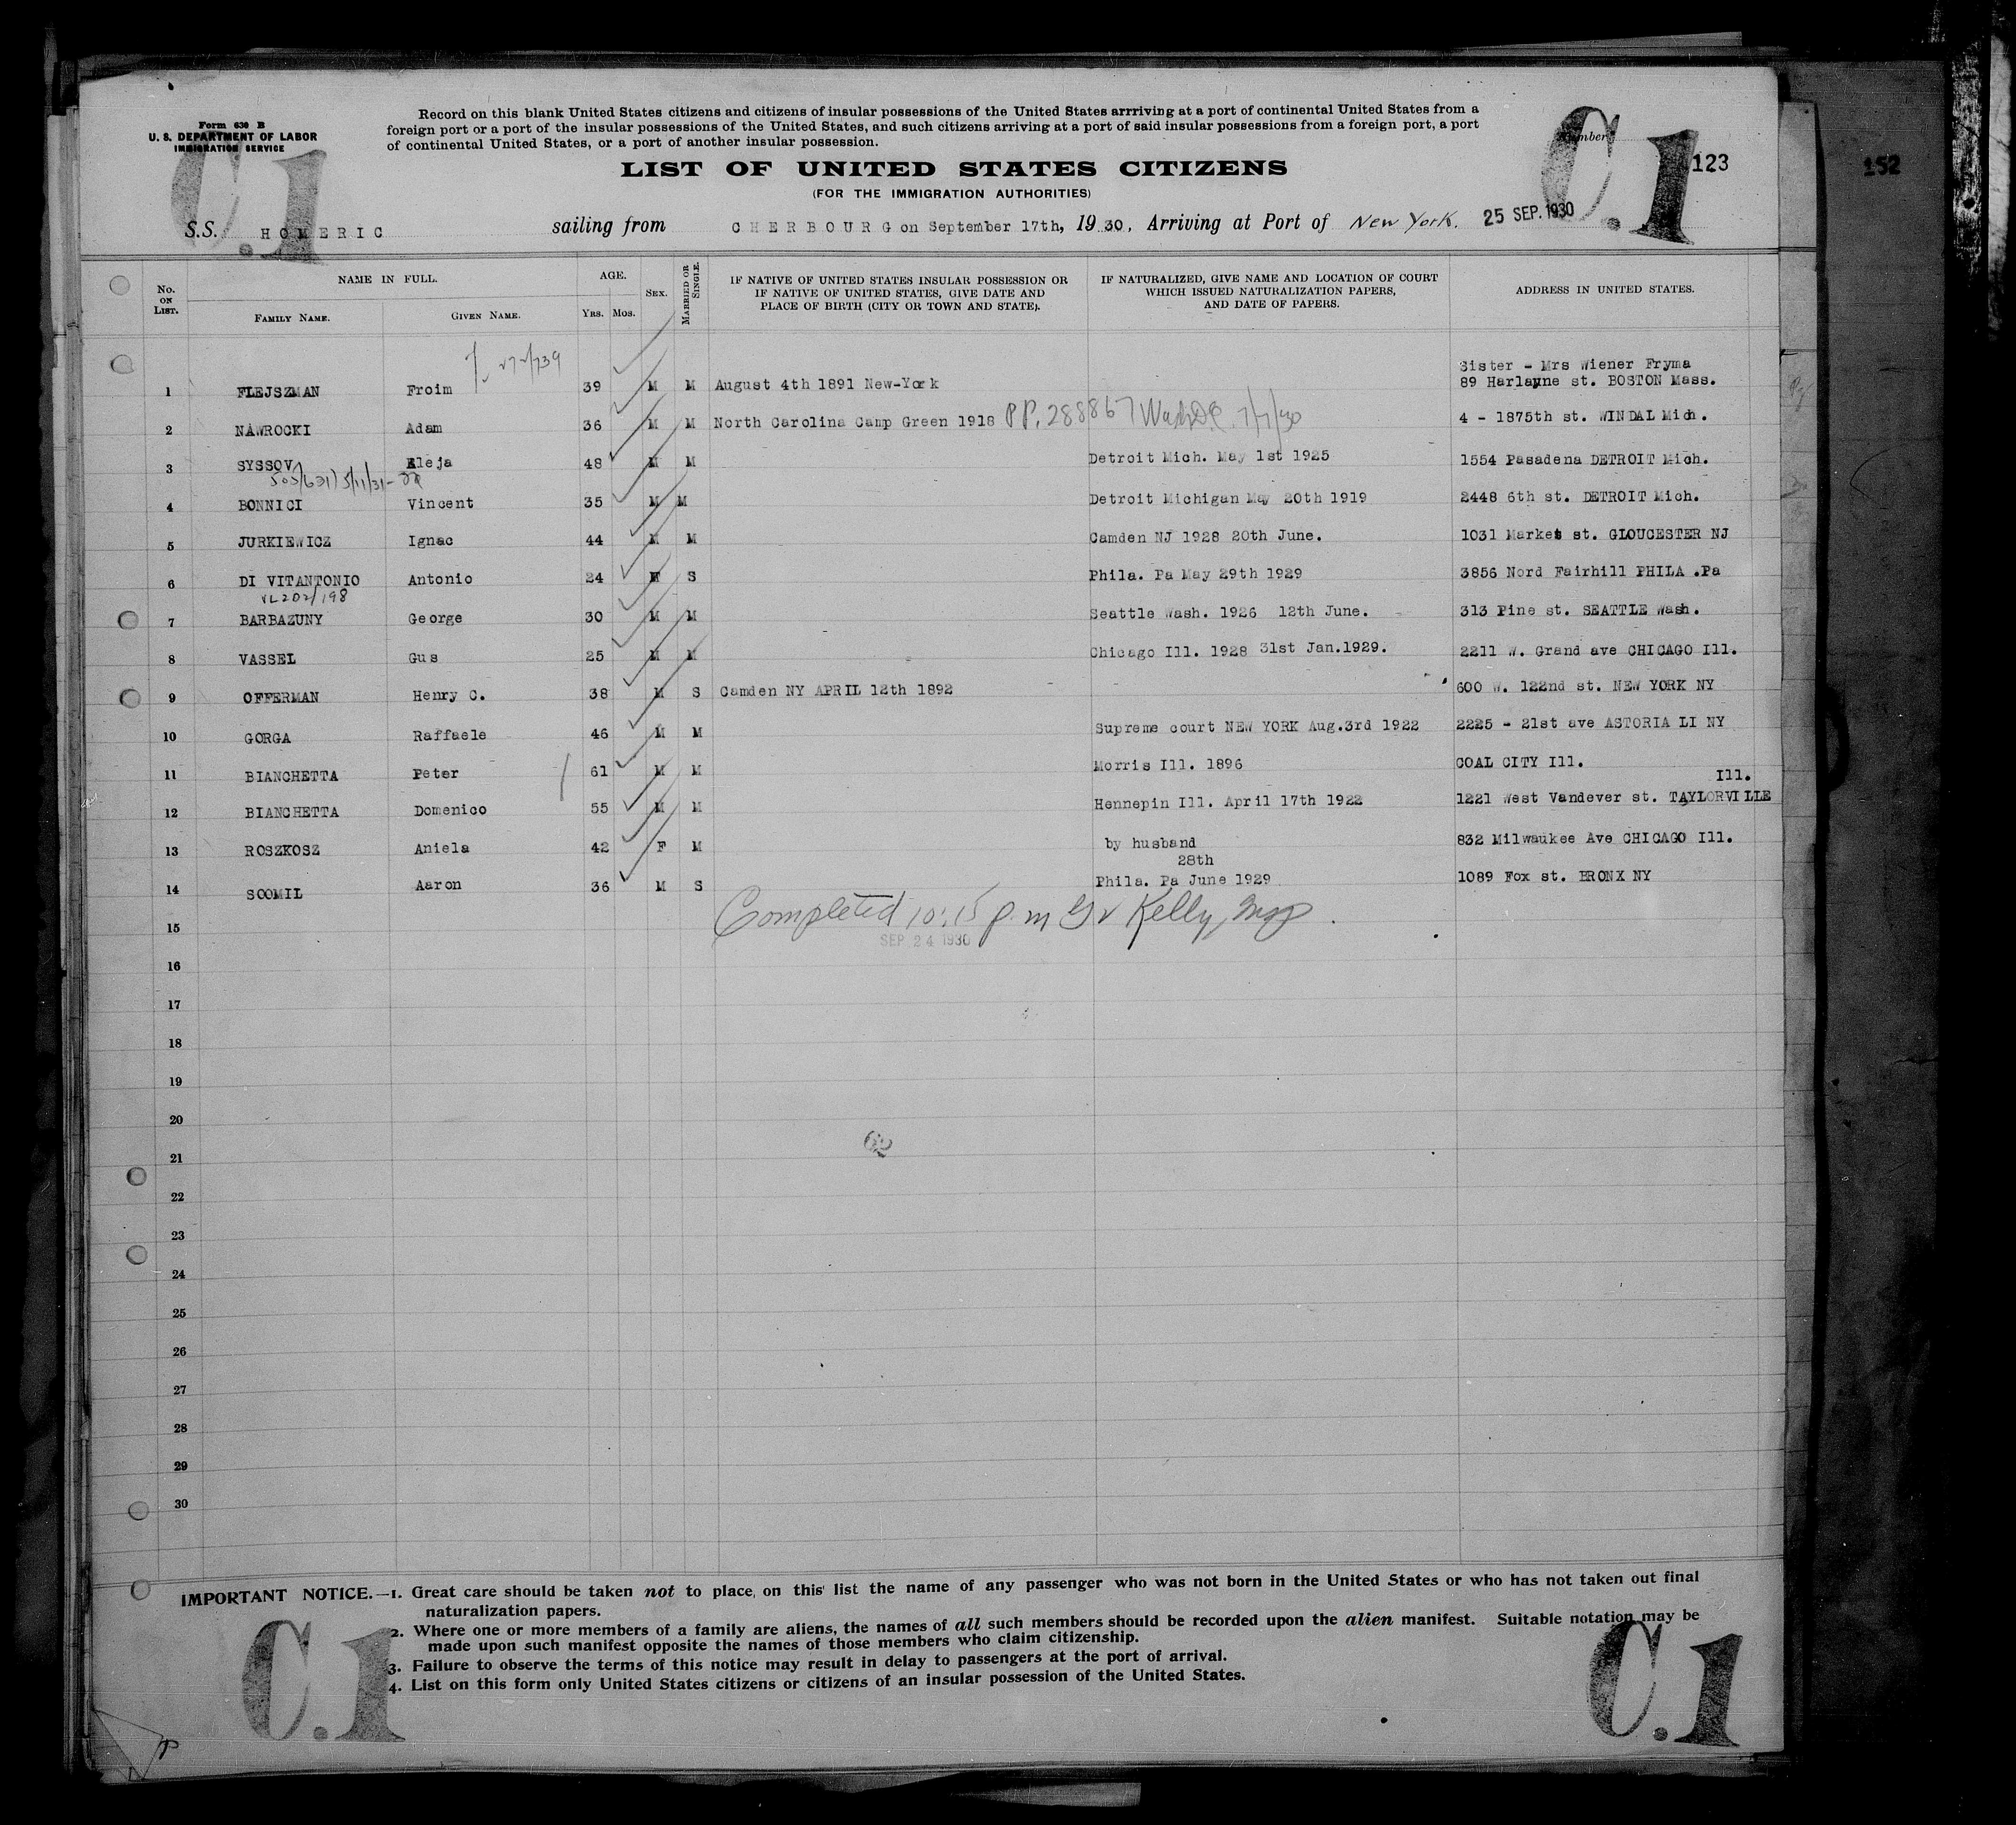 Form 630 B
U. S. DEPARTMENT OF LABOR
IMMIGRATION SERVICE
Record on this blank United States citizens and citizens of insular possessions of the United States arrriving at a port of continental United States from a
foreign port or a port of the insular possessions of the United States, and such citizens arriving at a port of said insular possessions from a foreign port, a port
of continental United States, or a port of another insular possession.
C.1
C.1
Number
123
152
LIST OF UNITED STATES CITIZENS
(FOR THE IMMIGRATION AUTHORITIES)
S.S. HOMERIC sailing from CHERBOURG on September 17th, 1930, Arriving at Port of New York. 25 SEP. 1930
No. ON LIST. NAME IN FULL. FAMILY NAME. GIVEN NAME. AGE. YRS. MOS. SEX. MARRIED OR SINGLE. IF NATIVE OF UNITED STATES INSULAR POSSESSION OR IF NATIVE OF UNITED STATES, GIVE DATE AND PLACE OF BIRTH (CITY OR TOWN AND STATE). IF NATURALIZED, GIVE NAME AND LOCATION OF COURT WHICH ISSUED NATURALIZATION PAPERS, AND DATE OF PAPERS. ADDRESS IN UNITED STATES.
Sister - Mrs Wiener Fryma
1 FLEJSZMAN Froim 39 M M August 4th 1891 New-York 89 Harlayne st. BOSTON Mass.
2 NAWROCKI Adam 36 M M North Carolina Camp Green 1918 PP. 288867 Wash D.C. 7/7/30 4 - 1875th st. WINDAL Mich.
3 SYSSOV Eleja 48 M M Detroit Mich. May 1st 1925 1554 Pasadena DETROIT Mich.
4 BONNICI Vincent 35 M M Detroit Michigan May 20th 1919 2448 6th st. DETROIT Mich.
5 JURKIEWICZ Ignac 44 M M Camden NJ 1928 20th June. 1031 Market st. GLOUCESTER NJ
6 DI VITANTONIO Antonio 24 M S Phila. Pa May 29th 1929 3856 Nord Fairhill PHILA .Pa
202/198
7 BARBAZUNY George 30 M M Seattle Wash. 1926 12th June. 313 Pine st. SEATTLE Wash.
8 VASSEL Gus 25 M M Chicago Ill. 1928 31st Jan.1929. 2211 W. Grand ave CHICAGO Ill.
9 OFFERMAN Henry C. 38 M S Camden NY APRIL 12th 1892 600 W. 122nd st. NEW YORK NY
10 GORGA Raffaele 46 M M Supreme court NEW YORK Aug.3rd 1922 2225 - 21st ave ASTORIA LI NY
11 BIANCHETTA Peter 61 M M Morris Ill. 1896 COAL CITY Ill.
Ill.
12 BIANCHETTA Domenico 55 M M Hennepin Ill. April 17th 1922 1221 West Vandever st. TAYLORVILLE
13 ROSZKOSZ Aniela 42 F M by husband 832 Milwaukee Ave CHICAGO Ill.
28th
14 SOOMIL Aaron 36 M S Phila. Pa June 1929 1089 Fox st. BRONX NY
15 Completed 10:15 p.m Kelly, Insp.
SEP 24 1930
16
17
18
19
20
21
22
23
24
25
26
27
28
29
30
IMPORTANT NOTICE.—1. Great care should be taken not to place on this list the name of any passenger who was not born in the United States or who has not taken out final
naturalization papers.
2. Where one or more members of a family are aliens, the names of all such members should be recorded upon the alien manifest. Suitable notation may be
made upon such manifest opposite the names of those members who claim citizenship.
3. Failure to observe the terms of this notice may result in delay to passengers at the port of arrival.
4. List on this form only United States citizens or citizens of an insular possession of the United States.
C.1
C.1